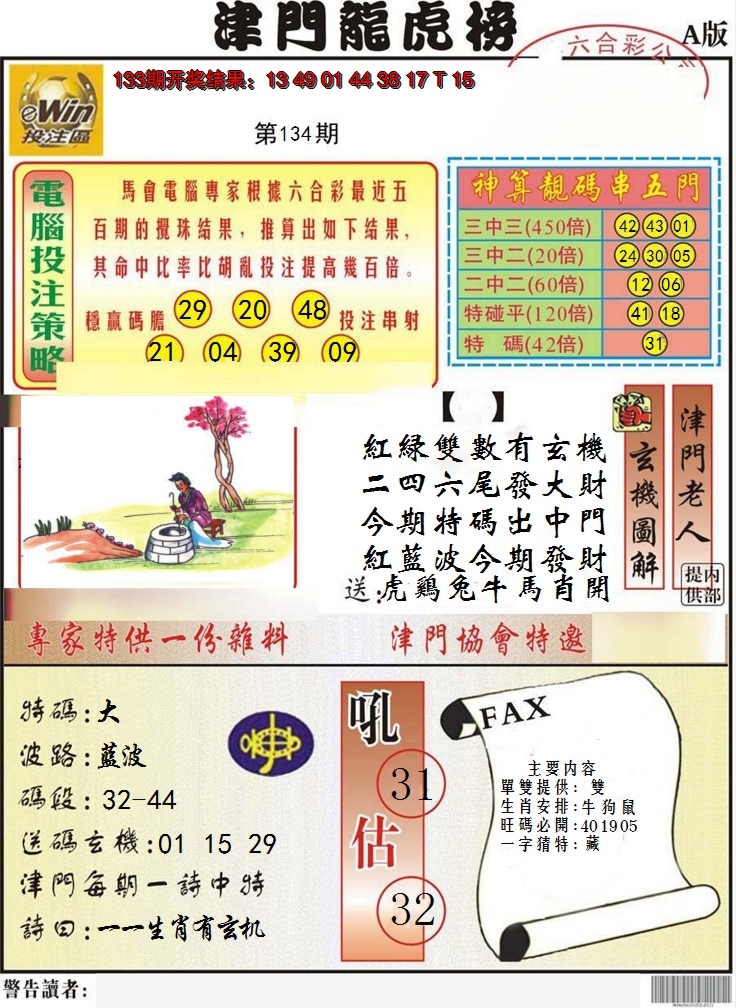 津門龍虎榜
A版
六合彩公
133期开奖结果：13 49 01 44 38 17 T 15
eWin
投注區
第134期
電腦投注策略
馬會電腦專家根據六合彩最近五
百期的攪珠结果，推算出如下结果，
其命中比率比胡亂投注提高幾百倍。
穩贏碼膽 29 20 48 投注串射
21 04 39 09
神算靚碼串五門
三中三(450倍) 42 43 01
三中二(20倍) 24 30 05
二中二(60倍) 12 06
特碰平(120倍) 41 18
特 碼(42倍) 31
【 】
紅緑雙數有玄機
二四六尾發大財
今期特碼出中門
紅藍波今期發財
送:虎鷄兔牛馬肖開
玄機圖解
津門老人
内部提供
專家特供一份雜料
津門協會特邀
特碼:大
波路:藍波
碼段:32-44
送碼玄機:01 15 29
津門每期一詩中特
詩曰:一一生肖有玄机
吼
31
估
32
FAX
主要内容
單雙提供:雙
生肖安排:牛狗鼠
旺碼必開:401905
一字猜特:藏
警告讀者: